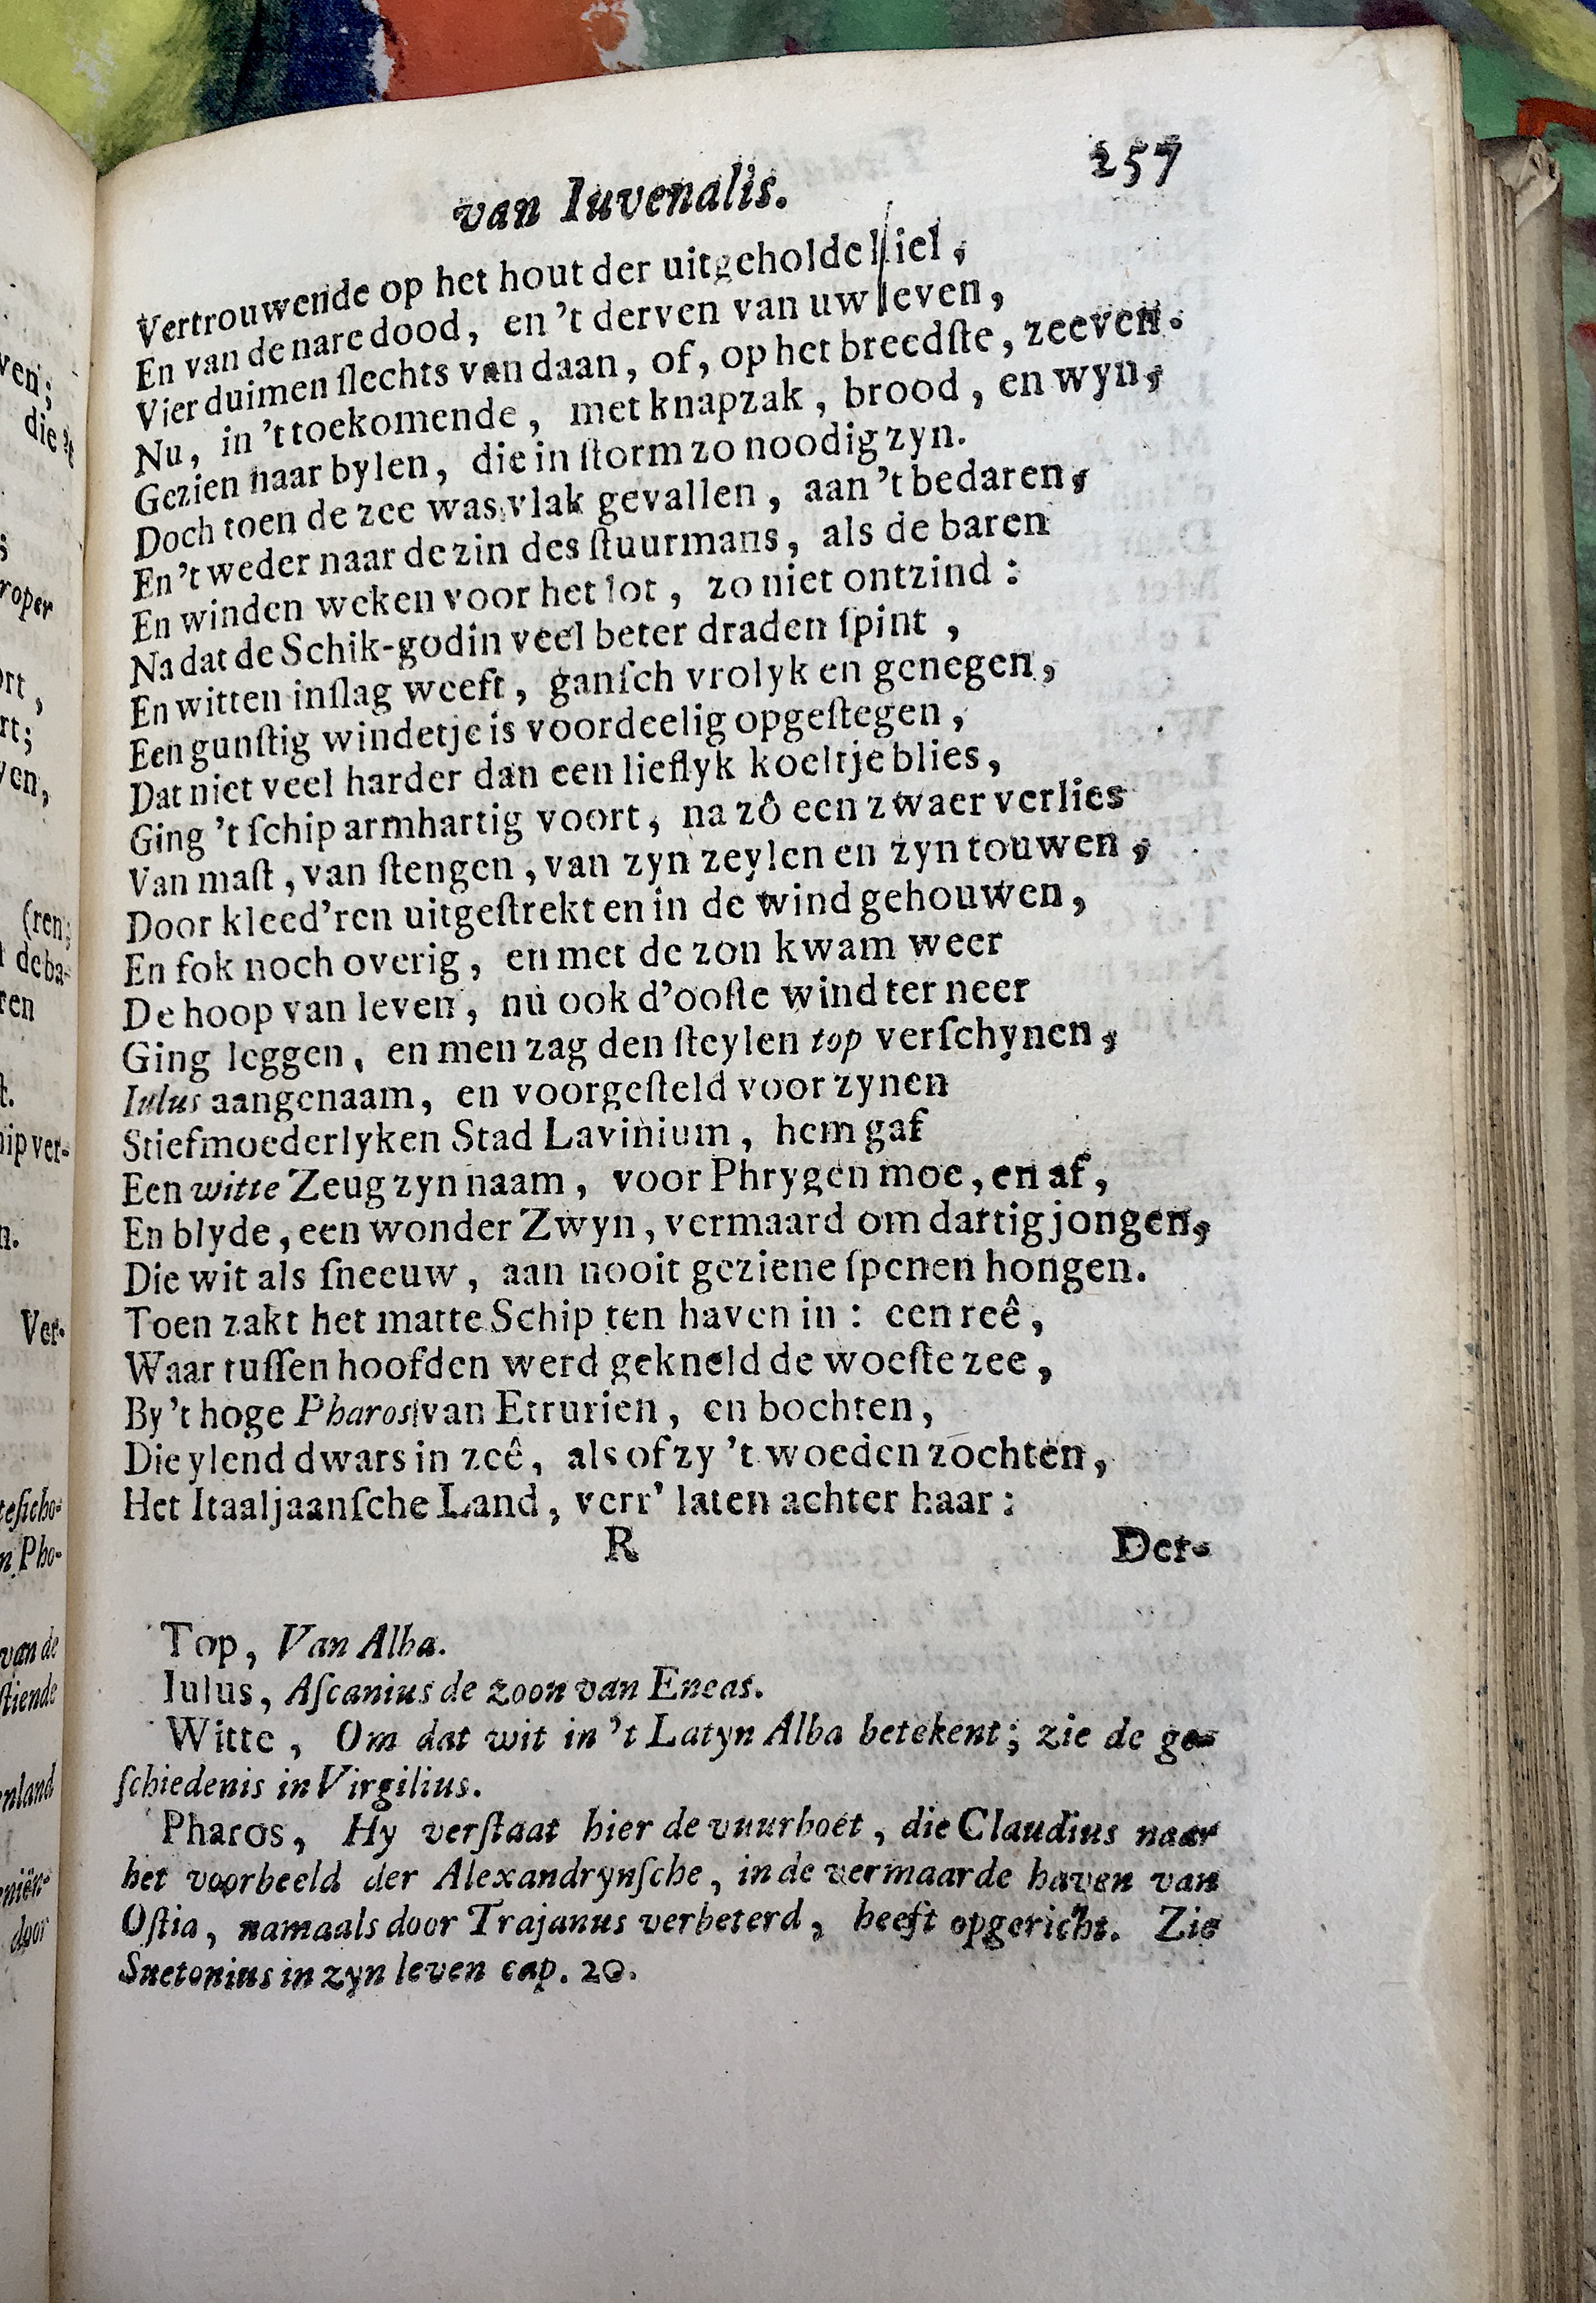 257
van Iuvenalis.
Vertrouwende op het hout der uitgeholde kiel,
En van de nare dood, en 't derven van uw leven,
Vier duimen ſlechts van daan, of, op het breedſte, zeeven.
Nu, in 't toekomende, met knapzak, brood, en wyn,
Gezien naar bylen, die in ſtorm zo noodig zyn.
Doch toen de zee was vlak gevallen, aan 't bedaren,
En 't weder naar de zin des ſtuurmans, als de baren
En winden weken voor het lot, zo niet ontzind:
Na dat de Schik-godin veel beter draden ſpint,
En witten inſlag weeft, ganſch vrolyk en genegen,
Een gunſtig windetje is voordeelig opgeſtegen,
Dat niet veel harder dan een lieflyk koeltje blies,
Ging 't ſchip armhartig voort, na zô een zwaer verlies
Van maſt, van ſtengen, van zyn zeylen en zyn touwen,
Door kleed'ren uitgeſtrekt en in de wind gehouwen,
En fok noch overig, en met de zon kwam weer
De hoop van leven, nu ook d'ooſte wind ter neer
Ging leggen, en men zag den ſteylen top verſchynen,
Iulus aangenaam, en voorgeſteld voor zynen
Stiefmoederlyken Stad Lavinium, hem gaf
Een witte Zeug zyn naam, voor Phrygen moe, en af,
En blyde, een wonder Zwyn, vermaard om dartig jongen,
Die wit als ſneeuw, aan nooit geziene ſpenen hongen.
Toen zakt het matte Schip ten haven in: een reê,
Waar tuſſen hoofden werd gekneld de woeſte zee,
By 't hoge Pharos van Etrurien, en bochten,
Die ylend dwars in zeê, als of zy 't woeden zochten,
Het Itaaljaanſche Land, verr' laten achter haar:
R Der-
Top, Van Alba.
Iulus, Aſcanius de zoon van Eneas.
Witte, Om dat wit in 't Latyn Alba betekent; zie de ge-
ſchiedenis in Virgilius.
Pharos, Hy verſtaat hier de vuurboet, die Claudius naar
het voorbeeld der Alexandrynſche, in de vermaarde haven van
Oſtia, namaals door Trajanus verbeterd, heeft opgericht. Zie
Suetonius in zyn leven cap. 20.